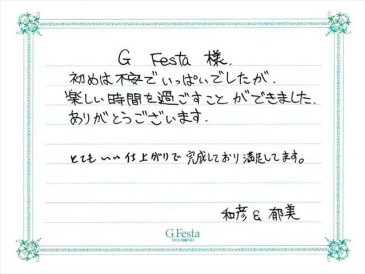 G Festa 様.
初めは不安でいっぱいでしたが.
楽しい時間を過ごすことができました.
ありがとうございます.
とてもいい仕上がりで完成しており満足してます。
和彦 & 郁美
G.Festa